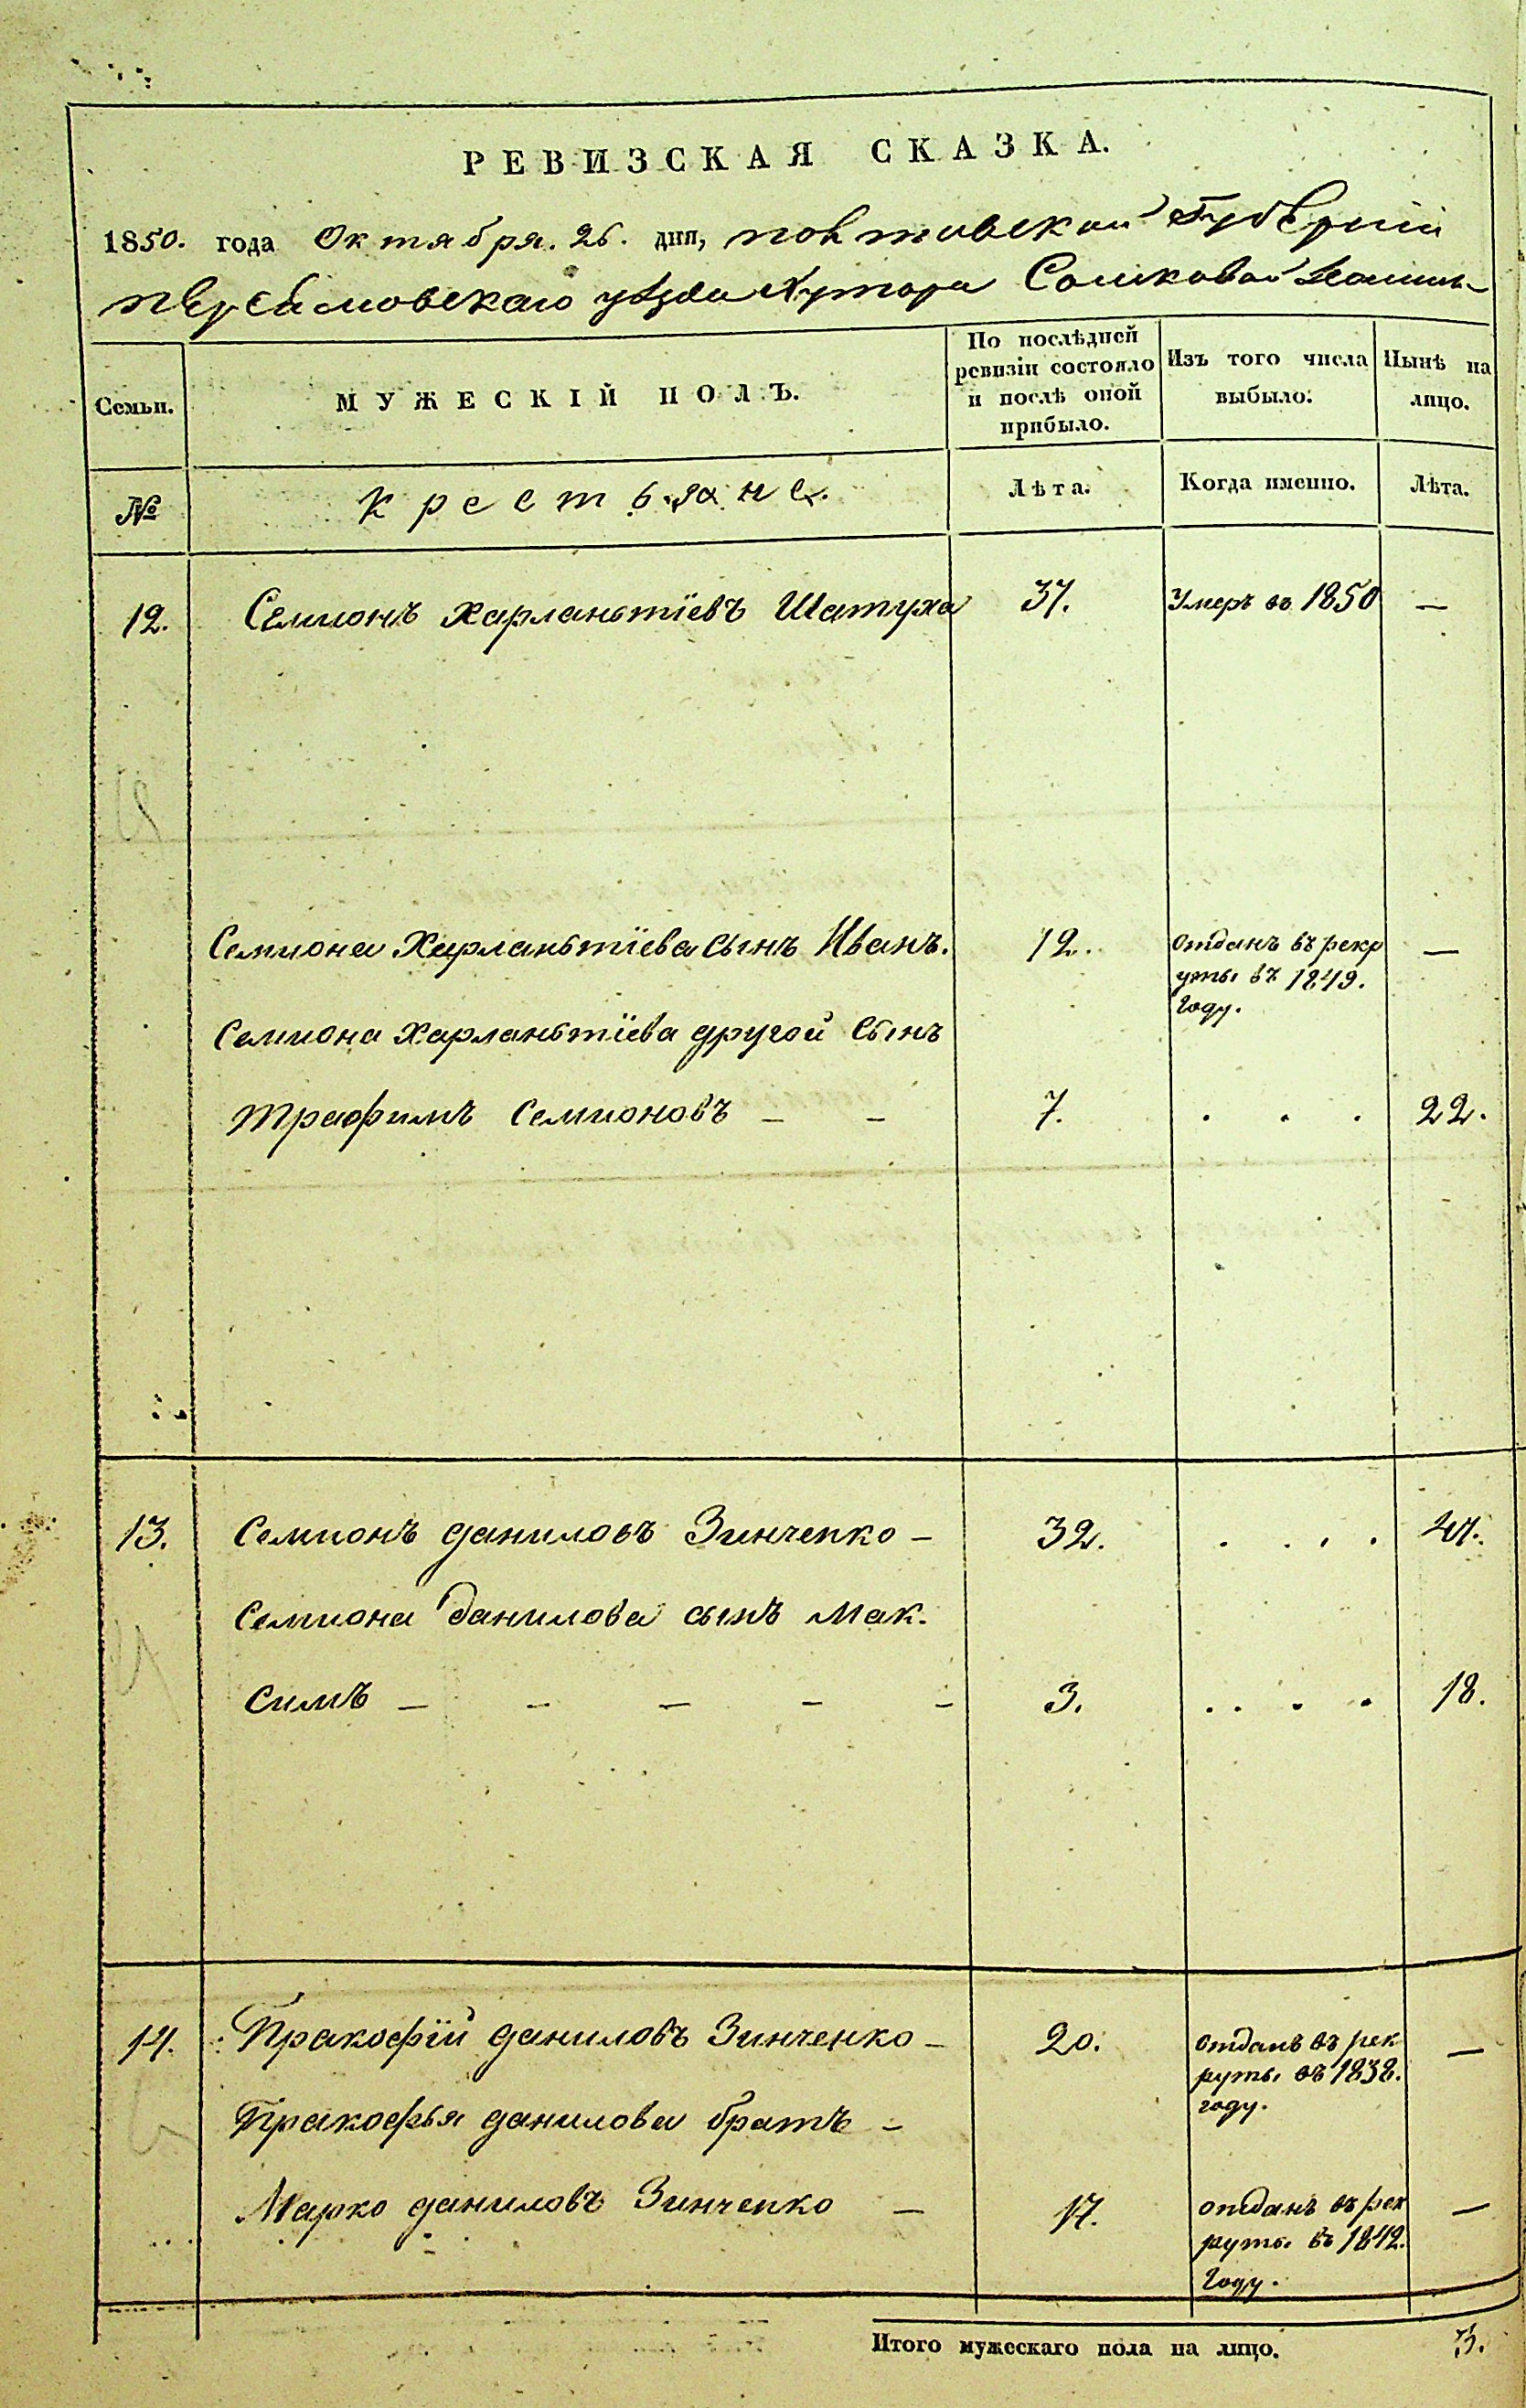 РЕВИЗСКАЯ СКАЗКА.
1850. года Октября. 26. дня, Полтавской Губернии
Переяславского уезда Хутора Сомковой
Семьи.
МУЖЕСКІЙ ПОЛЪ.
По послѣдней ревизіи состояло и послѣ оной прибыло.
Изъ того числа выбыло:
Нынѣ на лицо.
№
Крестьяне.
Лѣта.
Когда именно.
Лѣта.
12. Семионъ Харланьтіевъ Шатуха 37. Умеръ въ 1850 —
Семиона Харланьтіева сынъ Иванъ. 12. отданъ въ рекр
уты въ 1849.
Году.
—
Семиона Харланьтіева другой сынъ
Трафимъ Семионовъ — — 7. . . . 22.
13. Семионъ Даниловъ Зинченко — 32. . . . . 47.
Семиона Данилова сынъ Мак.
симъ — — — — — 3. . . . . 18.
14. Пракофій Даниловъ Зинченко — 20. отданъ въ рек
руты въ 1838.
году.
—
Пракофья Данилова братъ —
Марко Даниловъ Зинченко — 17. отданъ въ рек
руты въ 1842.
Году.
—
Итого мужескаго пола на лицо. 3.